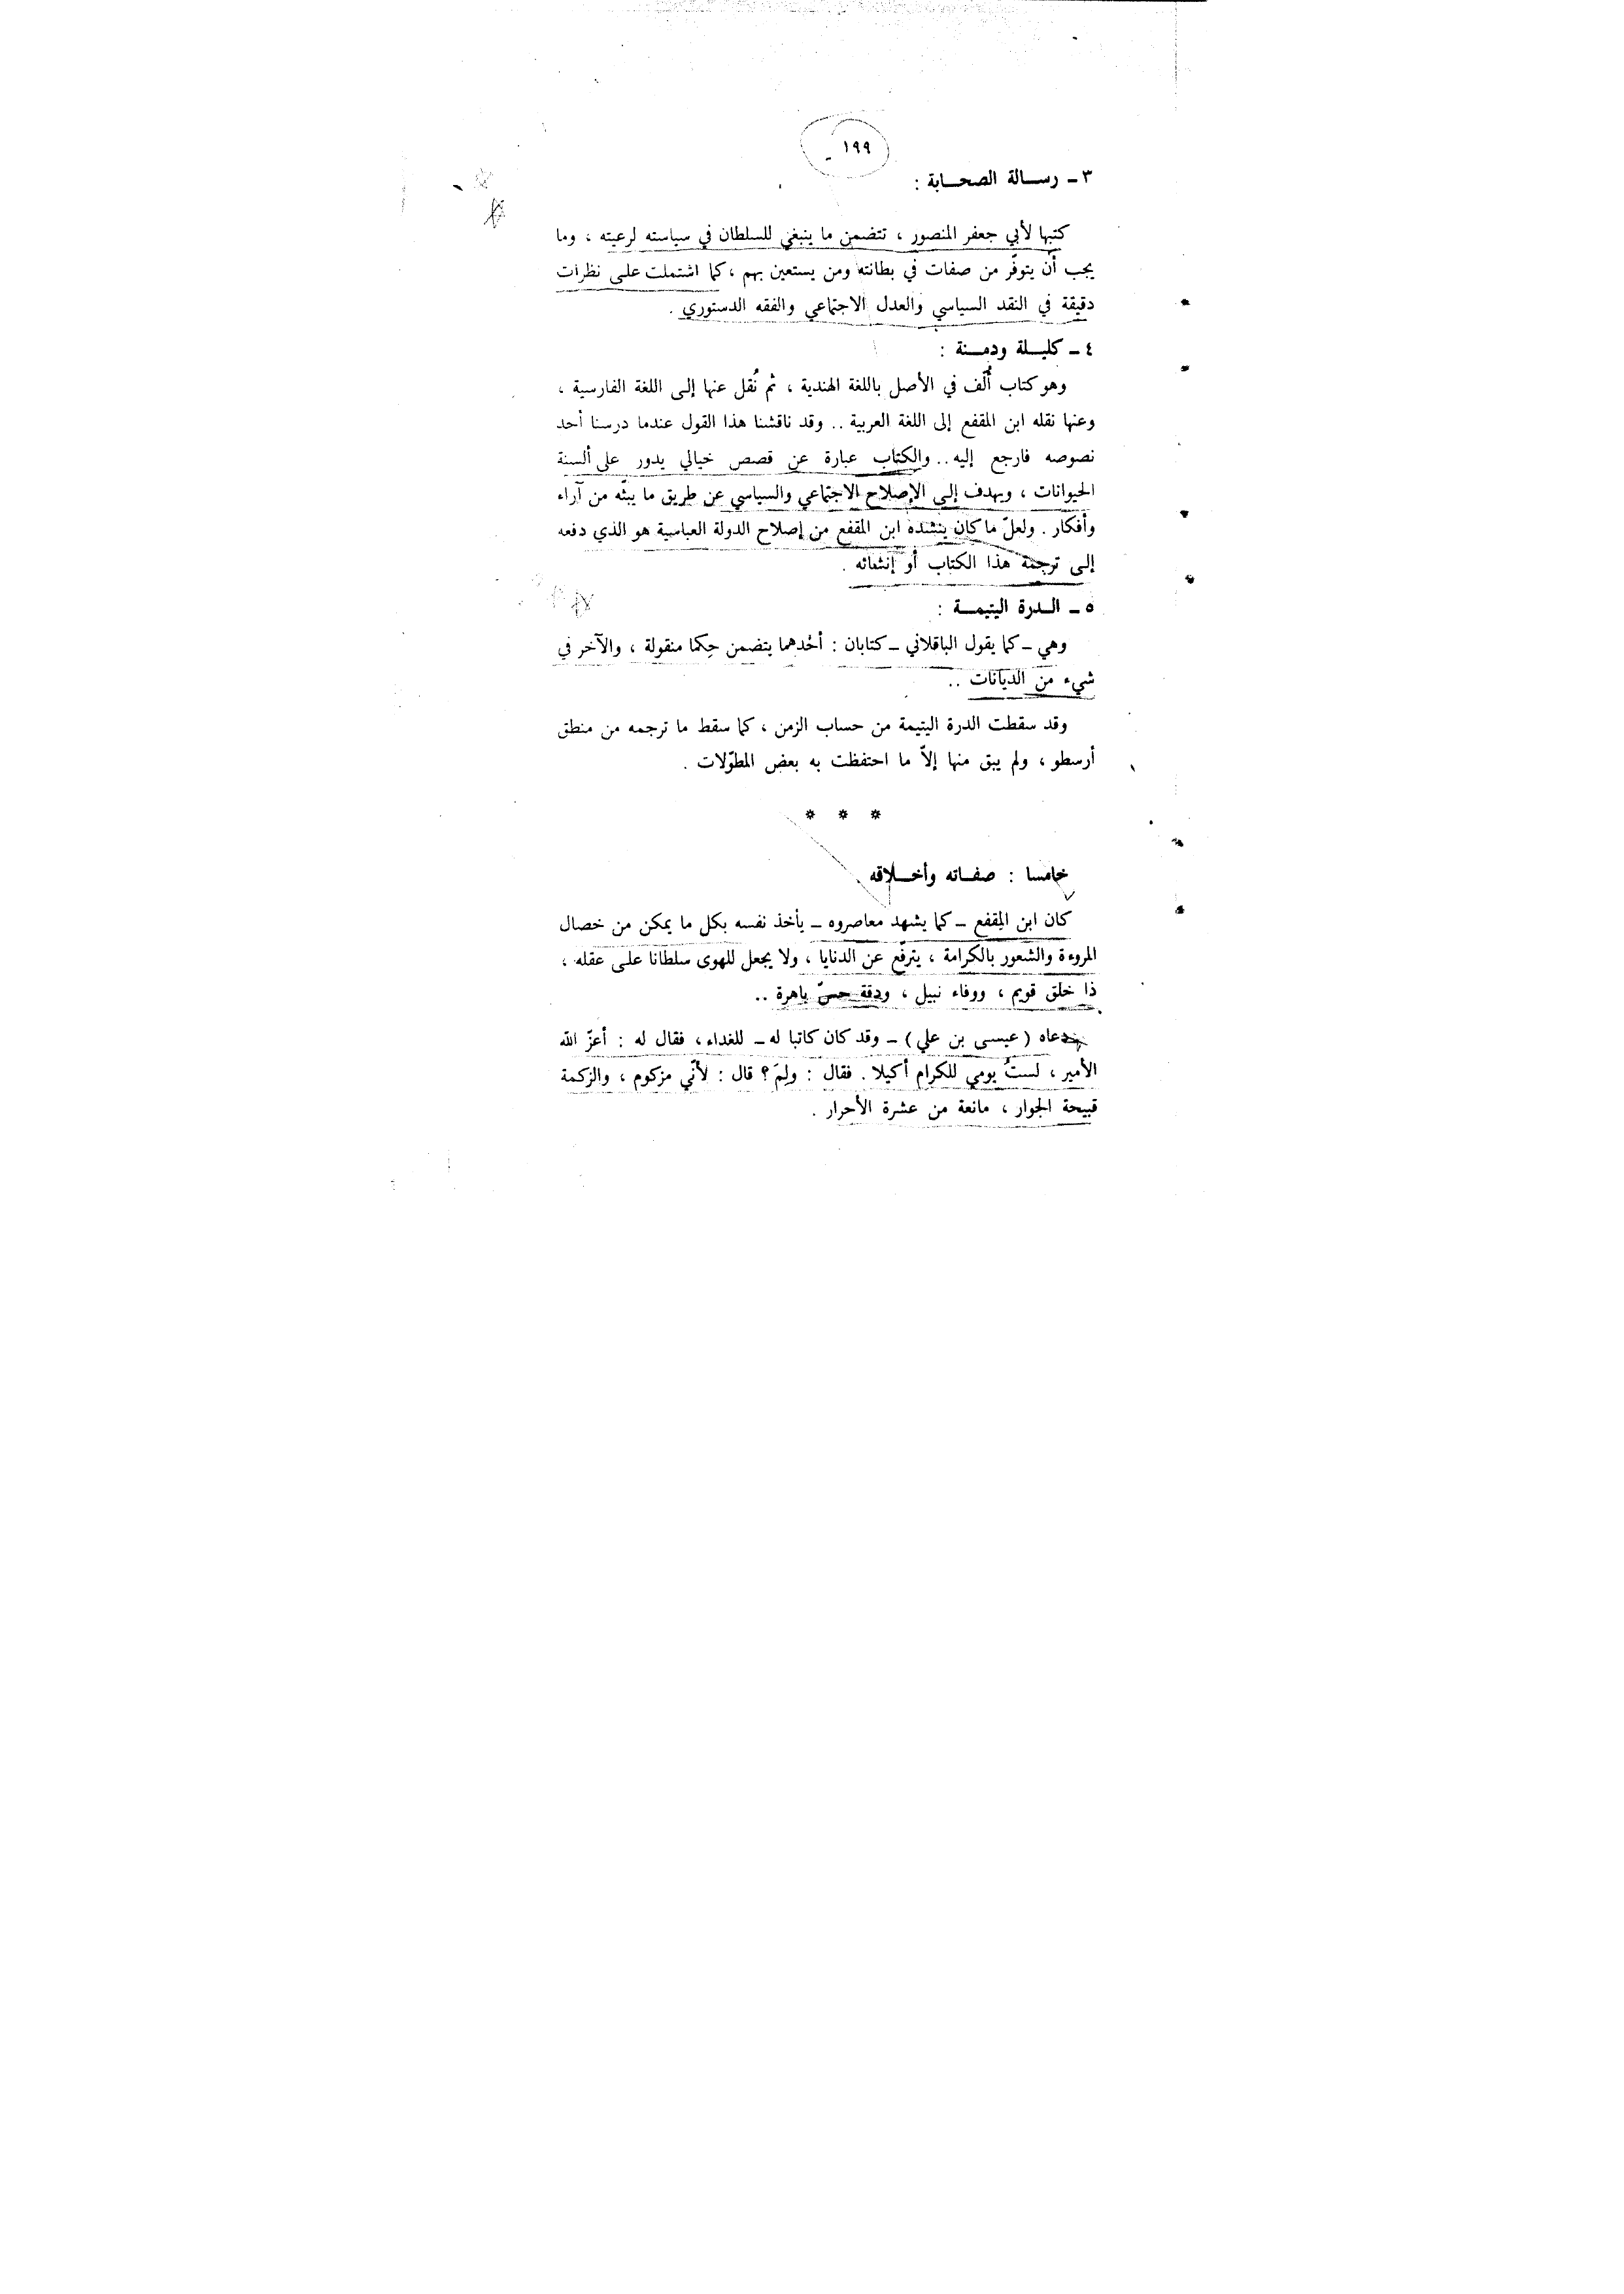 ١٩٩
٣ ـ رسـالة الصحـابة :
كتبها لأبي جعفر المنصور ، تتضمن ما ينبغي للسلطان في سياسته لرعيته ، وما
يجب أن يتوفّر من صفات في بطانته ومن يستعين بهم ، كما اشتملت على نظرات
دقيقة في النقد السياسي والعدل الاجتماعي والفقه الدستوري .
٤ ـ كليـلة ودمـنة :
وهو كتاب أُلّف في الأصل باللغة الهندية ، ثم نُقل عنها إلى اللغة الفارسية ،
وعنها نقله ابن المقفع إلى اللغة العربية .. وقد ناقشنا هذا القول عندما درسنا أحد
نصوصه فارجع إليه .. والكتاب عبارة عن قصص خيالي يدور على ألسنة
الحيوانات ، ويهدف إلى الإصلاح الاجتماعي والسياسي عن طريق ما يبثّه من آراء
وأفكار . ولعلّ ما كان ينشده ابن المقفع من إصلاح الدولة العباسية هو الذي دفعه
إلى ترجمة هذا الكتاب أو إنشائه .
٥ ـ الـدرة اليتيمـة :
وهي ـ كما يقول الباقلاني ـ كتابان : أحدهما يتضمن حِكما منقولة ، والآخر في
شيء من الديانات ..
وقد سقطت الدرة اليتيمة من حساب الزمن ، كما سقط ما ترجمه من منطق
أرسطو ، ولم يبق منها إلاّ ما احتفظت به بعض المطوّلات .
* * *
خامسا : صفـاته وأخـلاقه .
كان ابن المقفع ـ كما يشهد معاصروه ـ يأخذ نفسه بكل ما يمكن من خصال
المروءة والشعور بالكرامة ، يترفّع عن الدنايا ، ولا يجعل للهوى سلطانا على عقله ،
ذا خلق قويم ، ووفاء نبيل ، ودقة حسّ باهرة ..
دعاه ( عيسى بن علي ) ـ وقد كان كاتبا له ـ للغداء ، فقال له : أعزّ الله
الأمير ، لستُ يومي للكرام أكيلا . فقال : ولِمَ ؟ قال : لأنّي مزكوم ، والزكمة
قبيحة الجوار ، مانعة من عشرة الأحرار .